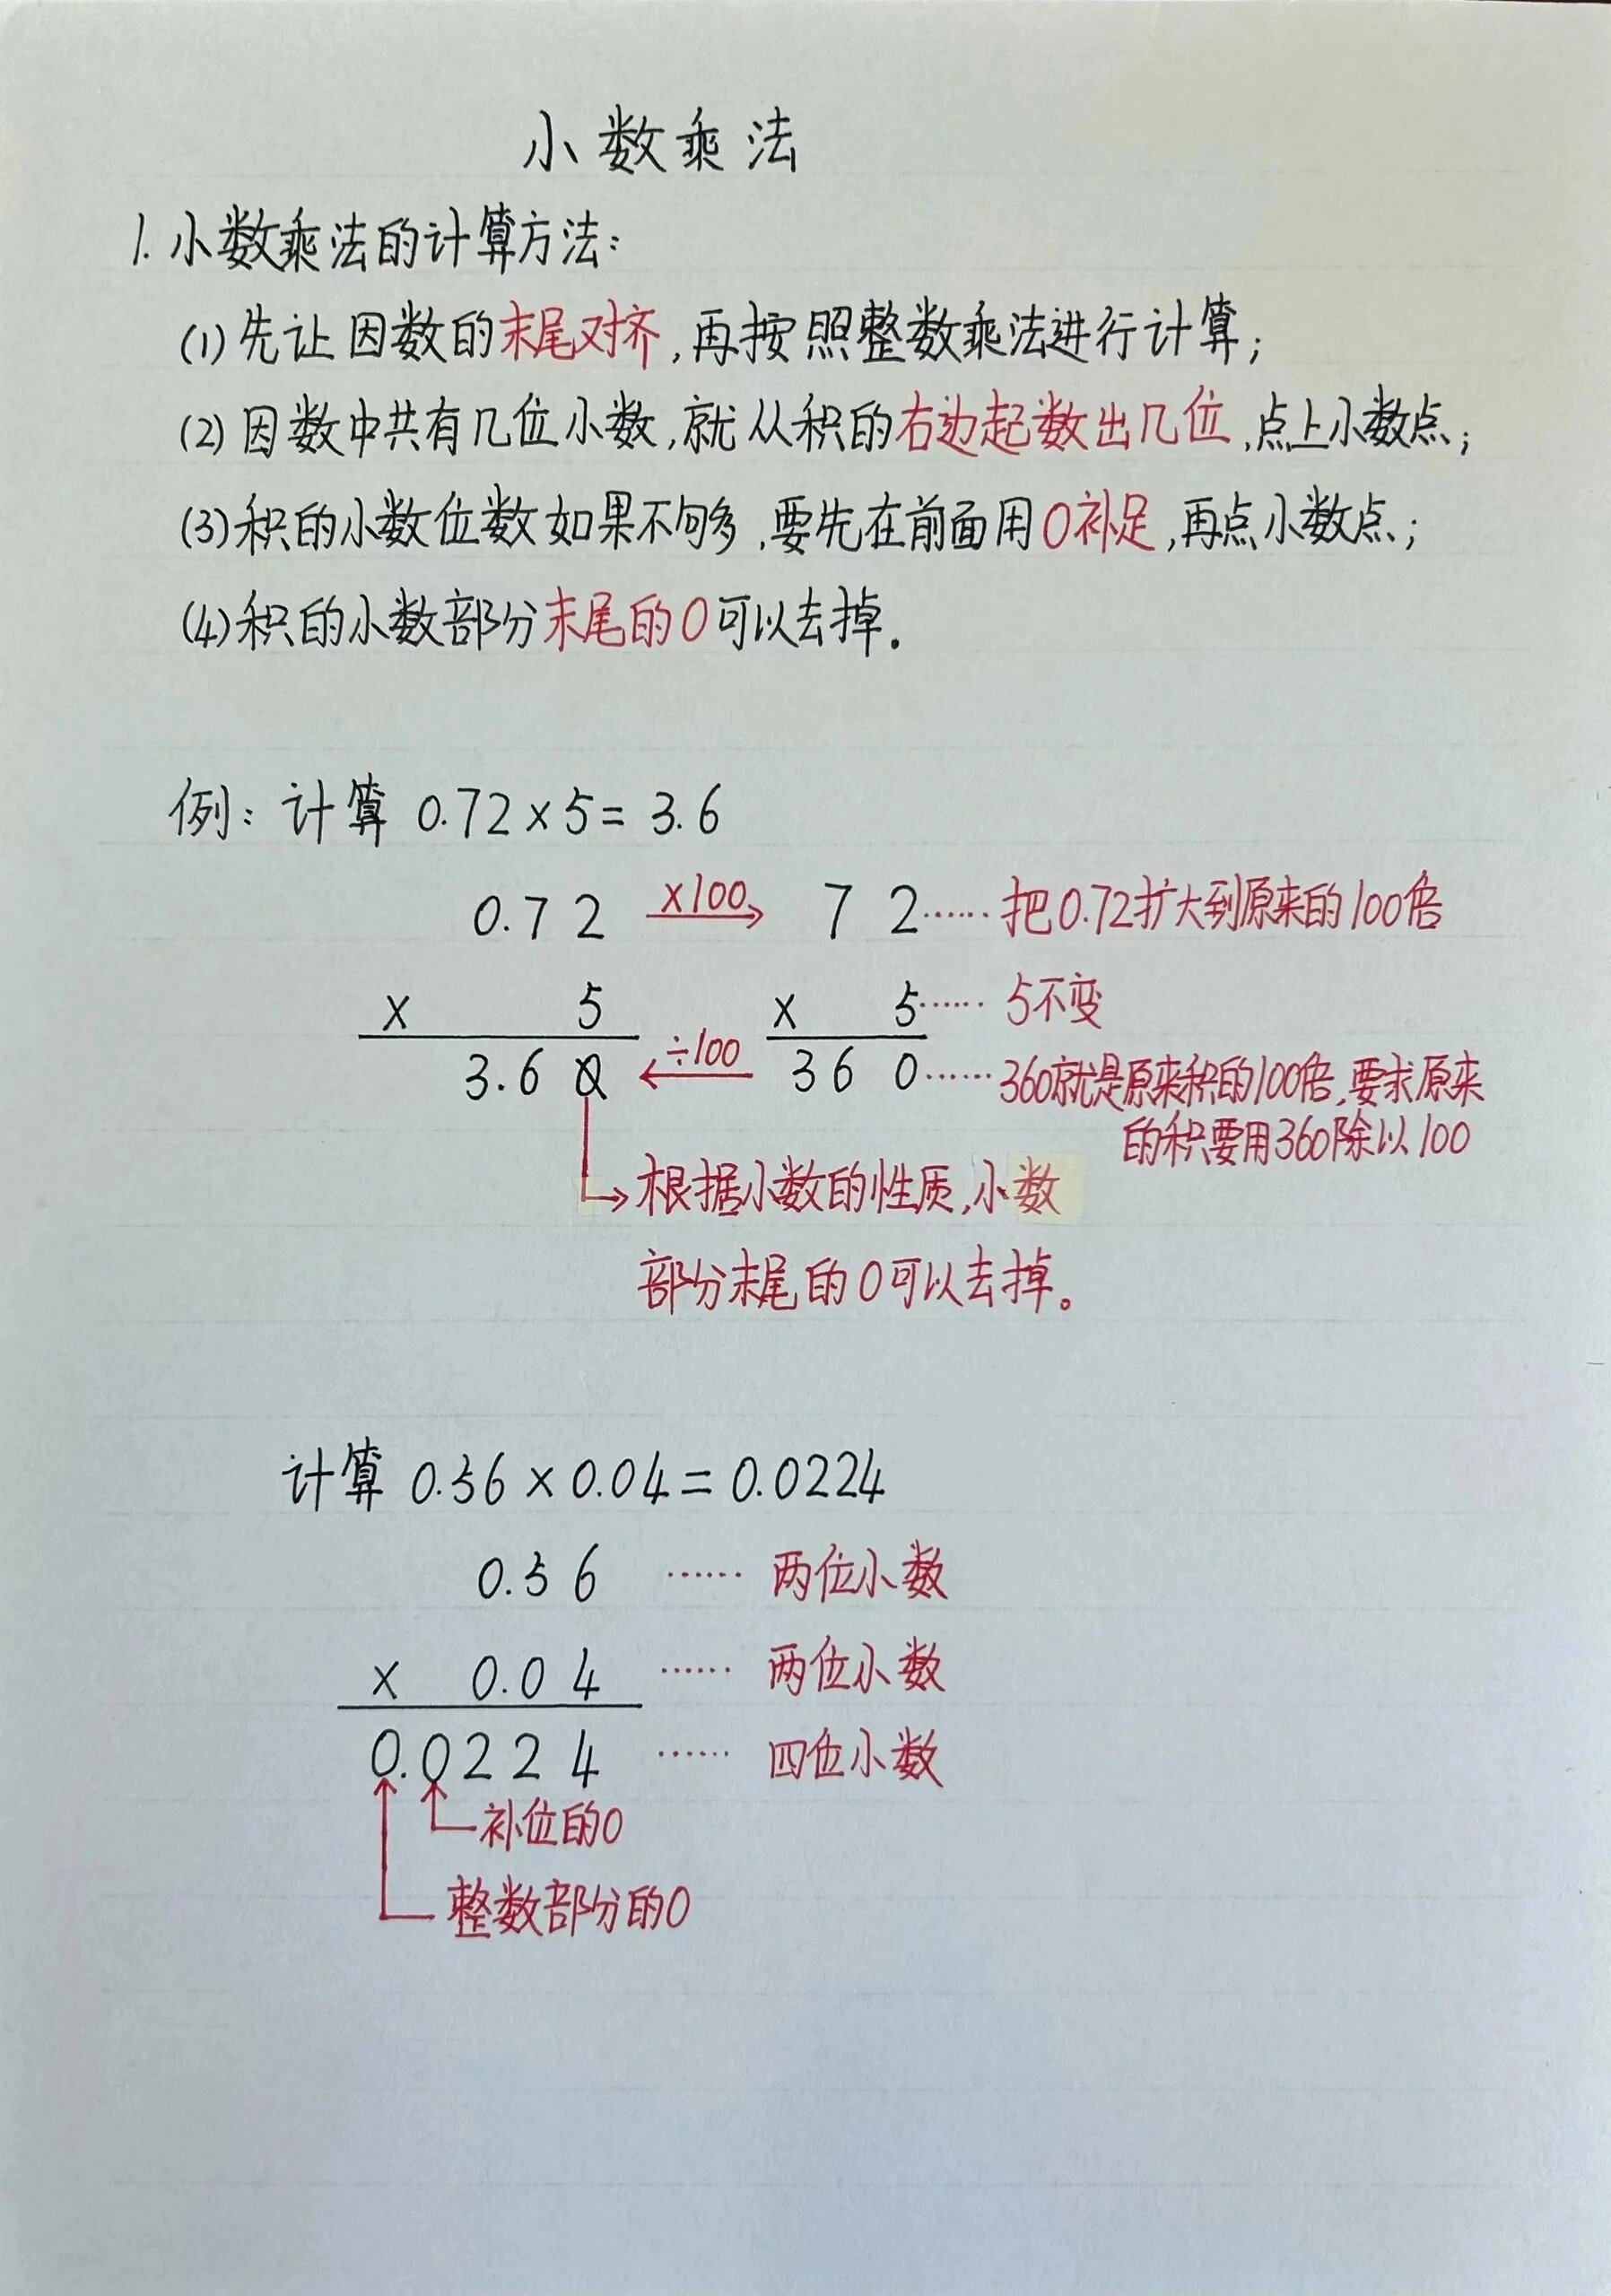 小数乘法
1. 小数乘法的计算方法：
(1)先让因数的末尾对齐,再按照整数乘法进行计算；
(2)因数中共有几位小数,就从积的右边起数出几位,点上小数点；
(3)积的小数位数如果不够多,要先在前面用0补足,再点小数点；
(4)积的小数部分末尾的0可以去掉。
例：计算 0.72×5= 3.6
0.72 ×100 72……把0.72扩大到原来的100倍
× 5 × 5……5不变
3.60 ÷100 360……360就是原来积的100倍,要求原来
的积要用360除以100
根据小数的性质,小数
部分末尾的0可以去掉。
计算 0.56×0.04=0.0224
0.56 ……两位小数
× 0.04 ……两位小数
0.0224 ……四位小数
补位的0
整数部分的0